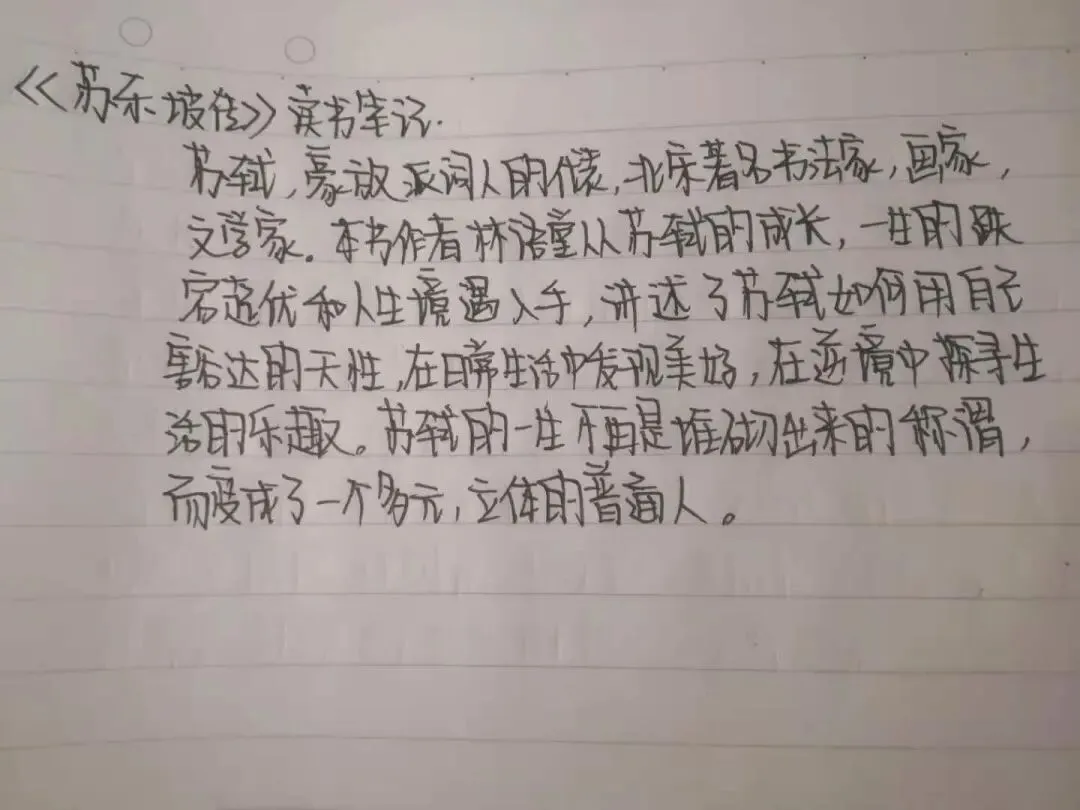 《苏东坡传》读书笔记.
苏轼,豪放派词人的代表,北宋著名书法家,画家,
文学家。本书作者林语堂从苏轼的成长,一生的跌
宕起伏和人生境遇入手,讲述了苏轼如何用自己
豁达的天性,在日常生活中发现美好,在逆境中探寻生
活的乐趣。苏轼的一生不再是堆砌出来的称谓,
而变成了一个多元,立体的普通人。